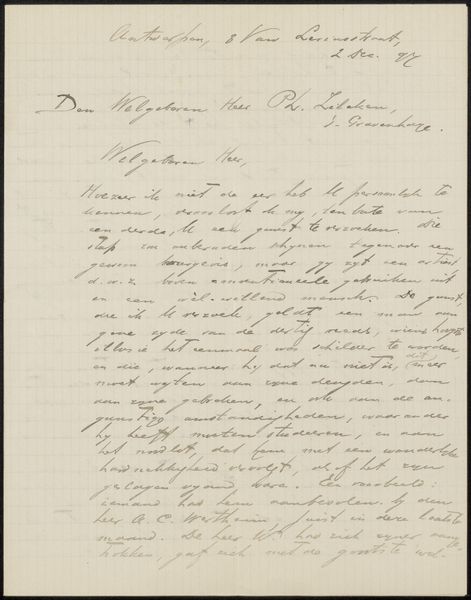 Antwerpen, 8 Van Lerinsstraat,
2 Dec. 97
Den Welgeboren Heer Ph. Zilcken,
's-Gravenhage.
Welgeboren Heer,
Hoezeer ik niet de eer heb U persoonlijk te
kennen, veroorloof ik mij, ten bate van
een derde, U een gunst te verzoeken. Die
stap zou onbescheiden schijnen tegenover een
gewoon bourgeois, maar gij zijt een artiest
d.w.z. boven conventioneele gebruiken uit
en een wel-willend mensch. De gunst,
die ik U verzoek, geldt een man aan
gene zijde van de dertig reeds, wiens hoogste
illusie het eenmaal was schilder te worden,
en die, wanneer hij dat nu niet is, dit meer
moet wijten aan zijne deugden, dan
aan zijne gebreken, en ook aan de on-
gunstige omstandigheden, waaronder
hij heeft moeten studeeren, en aan
het noodlot, dat hem met een wonderlijke
hardnekkigheid vervolgt, als of het zijn
gezworen vijand ware. Een voorbeeld:
iemand had hem aanbevolen bij den
heer A. C. Wertheim, juist in deze laatste
maand. De heer W. had zich zijner aange-
trokken, gaf zich met de grootste wel-